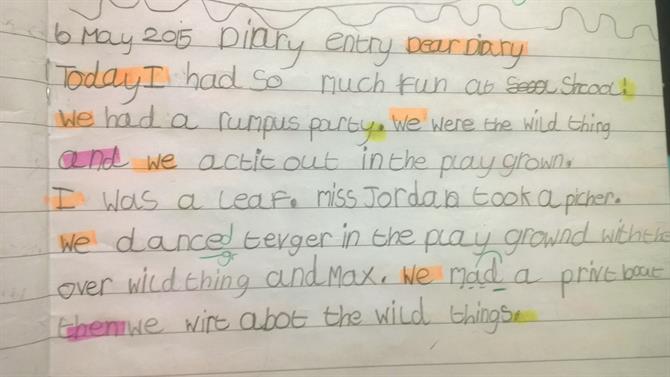 6 May 2015 Diary entry Dear Diary
Today I had so much fun at Shcool!
We had a rumpus party. We were the wild thing
and we actit out in the play grown.
I was a leaf. miss Jordan took a picher.
We danced terger in the play grownd with the
over wild thing and Max. We mad a privt boat
then we wirt abot the wild things.